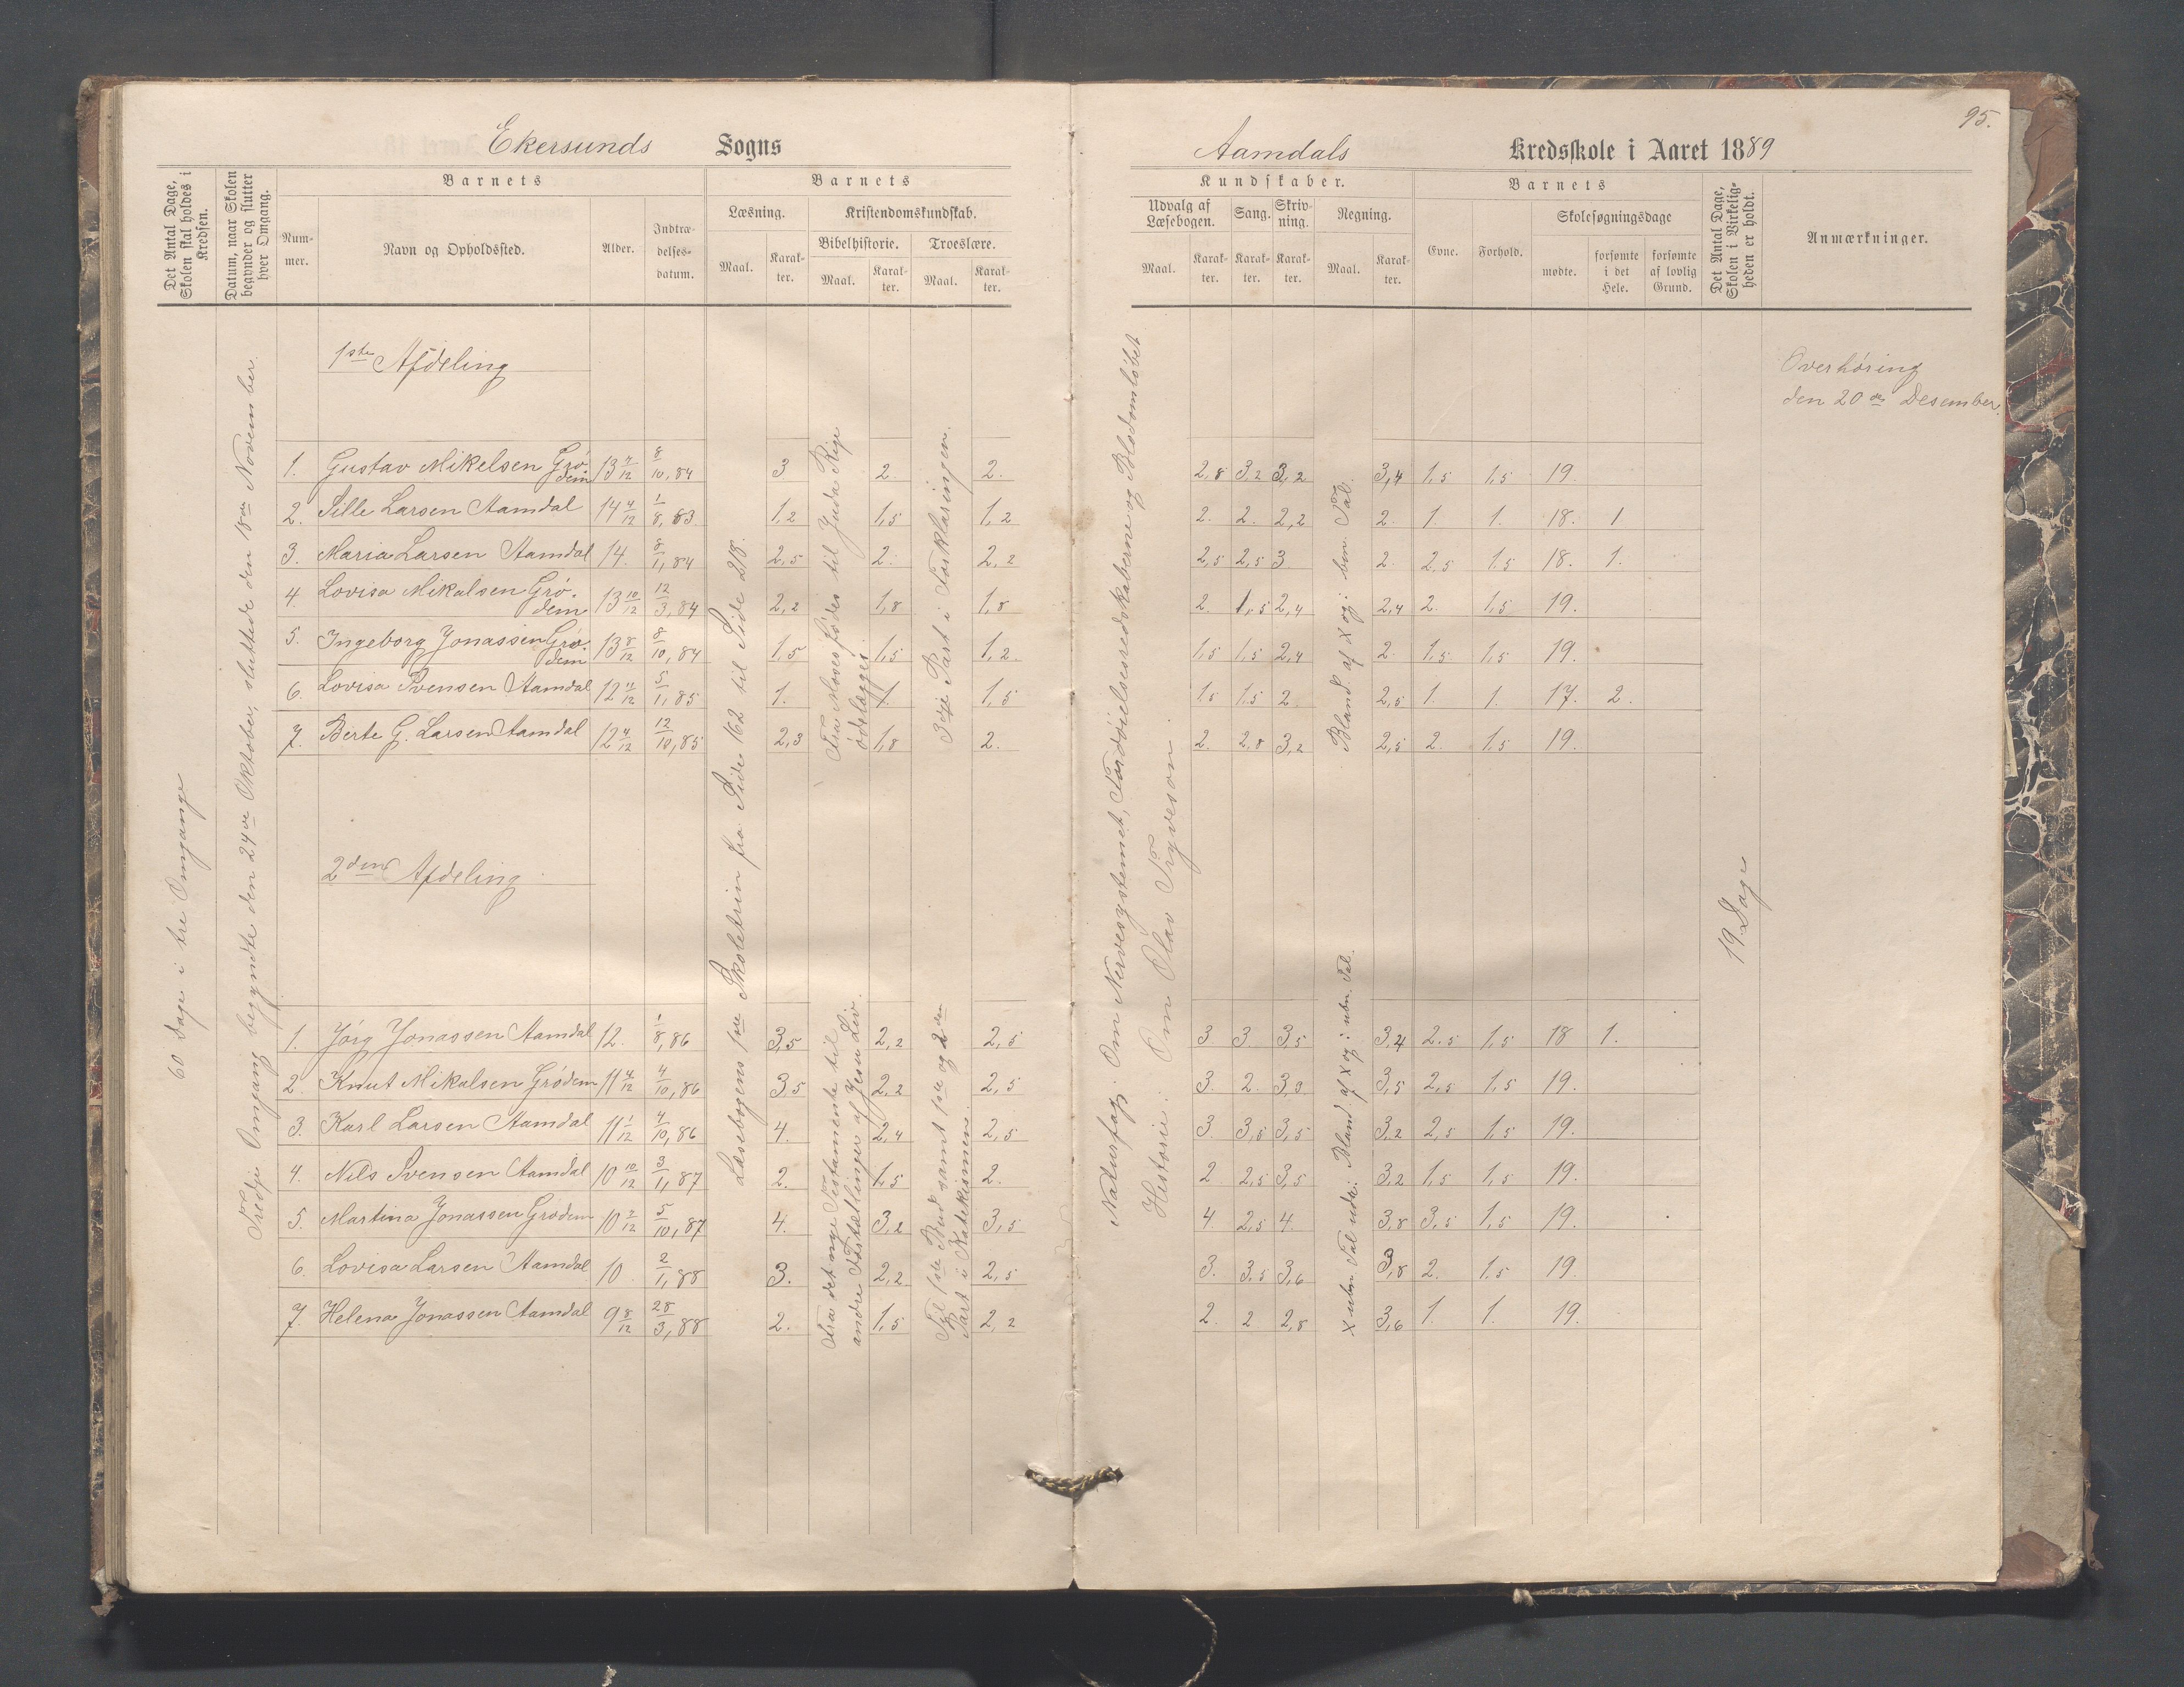 95.
Ekersunds Sogns
Aamdals Kredsskole i Aaret 1889
Det Antal Dage, Skolen skal holdes i Kredsen.
Datum, naar Skolen begynder og slutter hver Omgang.
Barnets
Num-mer.
Navn og Opholdssted.
Alder.
Indtræ-delses-datum.
Barnets
Læsning.
Maal. Karak-ter.
Kristendomskundskab.
Bibelhistorie. Troeslære.
Maal. Karak-ter. Maal. Karak-ter.
Kundskaber.
Udvalg af Læsebogen. Sang. Skriv-ning. Regning.
Maal. Karak-ter. Karak-ter. Karak-ter. Maal. Karak-ter.
Barnets
Evne. Forhold. Skolesøgningsdage
mødte. forsømte i det Hele. forsømte af lovlig Grund.
Det Antal Dage, Skolen i Virkelig-heden er holdt.
Anmærkninger.
60 Dage i tre Omgange
Tredje Omgang begyndte den 24de Oktober, sluttede den 18de November.
Læsebogens 1ste Skoletrin fra Side 162 til Side 218.
Naturfag: Om Nervesystemet, Fordøielsesredskaberne og Blodomløbet
Historie: Om Olav Trygveson.
19 Dage
Overhøring
den 20de Desember.
1ste Afdeling
Fra Moses fødes til Juda Rige ødelægges.
3dje Part i Forklaringen.
Bland. af X og : ben. Tal.
1. Gustav Mikelsen Grødem 13 7/12 8/10, 84 3 2. 2. 2,8 3,2 3,2 3,4 1,5 1,5 19.
2. Sille Larsen Aamdal 14 4/12 1/8, 83 1,2 1,5 1,2 2. 2. 2,2 2. 1. 1. 18. 1
3. Maria Larsen Aamdal 14. 8/1, 84 2,5 2. 2,2 2,5 2,5 3 2. 2,5 1,5 18. 1.
4. Lovisa Mikalsen Grødem 13 10/12 12/3, 84 2,2 1,8 1,8 2. 1,5 2,4 2,4 2. 1,5 19.
5. Ingeborg Jonassen Grødem 13 8/12 8/10, 84 1,5 1,5 1,2 1,5 1,5 2,4 2. 1,5 1,5 19.
6. Lovisa Svensen Aamdal 12 11/12 5/1, 85 1. 1. 1,5 1,5 1,5 2 2,5 1. 1. 17. 2.
7. Berte G. Larsen Aamdal 12 4/12 12/10, 85 2,3 1,8 2. 2. 2,8 3,2 2,5 2. 1,5 19.
2den Afdeling
Fra det nye Testamente til andre Fortællinger af Jesu Liv.
Til 1ste Bud samt 1ste og 2den Part i Katekismen.
X ubn. Tal udv. Bland. af X og : ubn. Tal.
1. Jørg Jonassen Aamdal 12. 1/8, 86 3,5 2,2 2,5 3 3. 3,5 3,4 2,5 1,5 18 1.
2. Knut Mikalsen Grødem 11 4/12 4/10, 86 3,5 2,2 2,5 3. 2. 3,0 3,5 2,5 1,5 19.
3. Karl Larsen Aamdal 11 1/12 4/10, 86 4. 2,4 2,5 3. 3,5 3,5 3,2 2,5 1,5 19.
4. Nils Svensen Aamdal 10 10/12 3/1, 87 2. 1,5 2. 2 2,5 3,5 3,2 1,5 1,5 19.
5. Martina Jonassen Grødem 10 7/12 5/10, 87 4. 3,2 3,5 4. 2,5 4. 3,8 3,5 1,5 19.
6. Lovisa Larsen Aamdal 10. 2/1, 88 3. 2,2 2,5 3. 3,5 3,6 3,8 2. 1,5 19.
7. Helena Jonassen Aamdal 9 8/12 28/3, 88 2. 1,5 2,2 2. 2 2,8 3,6 1. 1. 19.